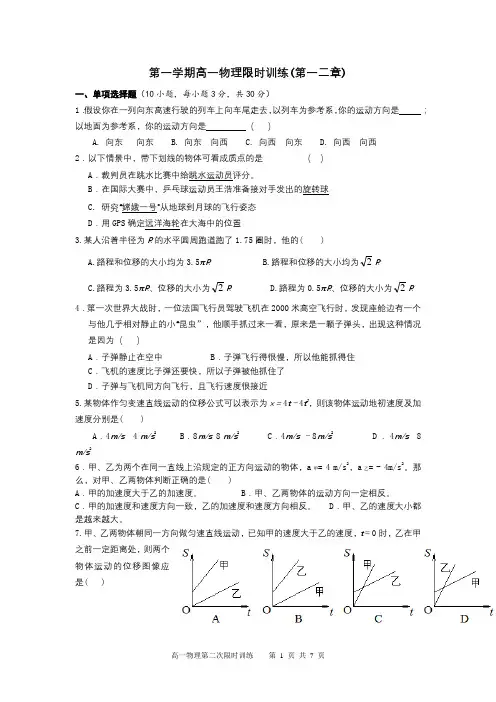 第一学期高一物理限时训练(第一二章)
一、单项选择题（10小题，每小题3分，共30分）
1.假设你在一列向东高速行驶的列车上向车尾走去,以列车为参考系,你的运动方向是_____；
以地面为参考系，你的运动方向是_________ ( )
A. 向东　向东　B. 向东　向西　C. 向西　向东　D. 向西　向西
2．以下情景中，带下划线的物体可看成质点的是 ( )
A．裁判员在跳水比赛中给跳水运动员评分。
B．在国际大赛中，乒乓球运动员王浩准备接对手发出的旋转球
C. 研究“嫦娥一号”从地球到月球的飞行姿态
D．用GPS确定远洋海轮在大海中的位置
3.某人沿着半径为 R 的水平圆周跑道跑了1.75圈时，他的( )
A.路程和位移的大小均为3.5πR　B.路程和位移的大小均为√2 R
C.路程为3.5πR、位移的大小为√2 R　D.路程为0.5πR、位移的大小为√2 R
4．第一次世界大战时，一位法国飞行员驾驶飞机在2000米高空飞行时，发现座舱边有一个
与他几乎相对静止的小“昆虫”，他顺手抓过来一看，原来是一颗子弹头，出现这种情况
是因为 ( )
A．子弹静止在空中　B．子弹飞行得很慢，所以他能抓得住
C．飞机的速度比子弹还要快，所以子弹被他抓住了
D．子弹与飞机同方向飞行，且飞行速度很接近
5.某物体作匀变速直线运动的位移公式可以表示为x＝4t－4t²，则该物体运动地初速度及加
速度分别是( )
A．4m/s 4 m/s²　B．8m/s 8 m/s²　C．4m/s －8m/s²　D．4m/s 8
m/s²
6．甲、乙为两个在同一直线上沿规定的正方向运动的物体，a甲= 4 m/s²，a乙= - 4m/s²。那
么，对甲、乙两物体判断正确的是( )
A．甲的加速度大于乙的加速度。　B．甲、乙两物体的运动方向一定相反。
C．甲的加速度和速度方向一致，乙的加速度和速度方向相反。　D．甲、乙的速度大小都
是越来越大。
7.甲、乙两物体朝同一方向做匀速直线运动，已知甲的速度大于乙的速度，t＝0时，乙在甲
之前一定距离处，则两个
物体运动的位移图像应
是( )
S 甲 乙 O t A
S 乙 甲 O t B
S 甲 乙 O t C
S 乙 甲 O t D
高一物理第二次限时训练　第 1 页 共 7 页